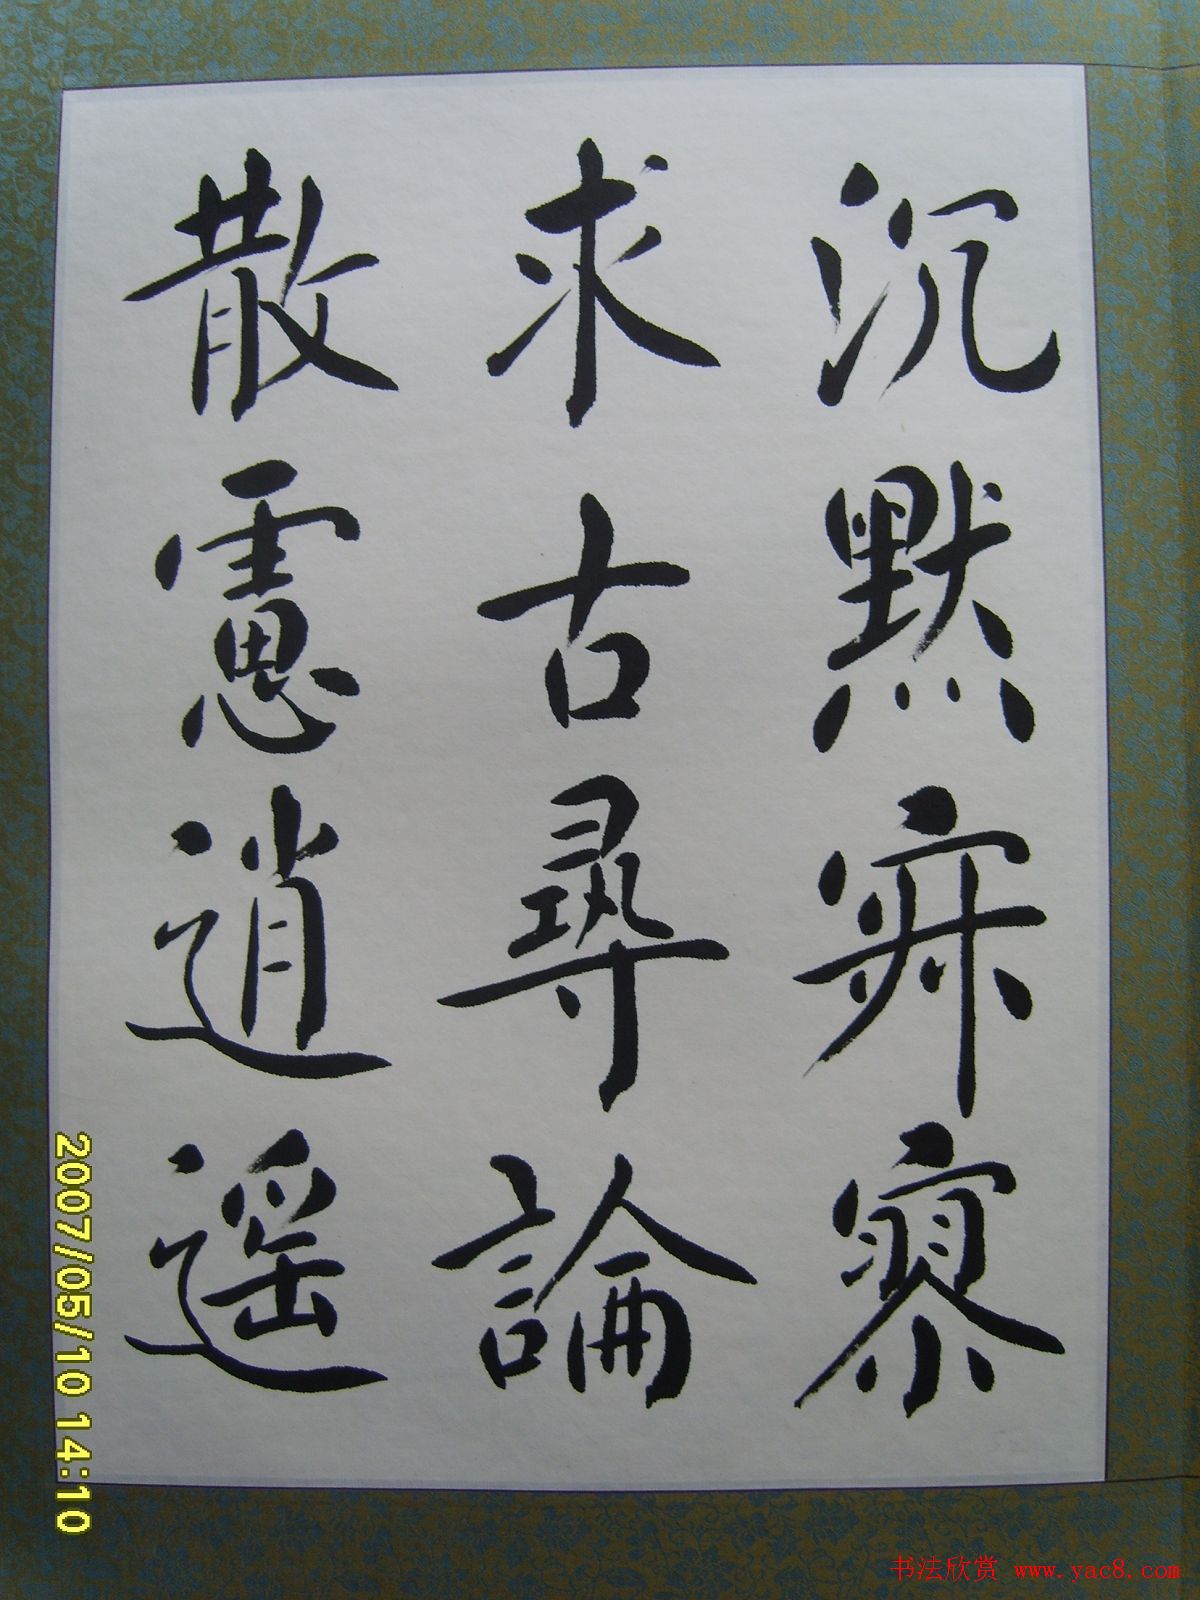 沉默寂寥
求古尋論
散慮逍遥
2007/05/10 14:10
书法欣赏 www.yac8.com